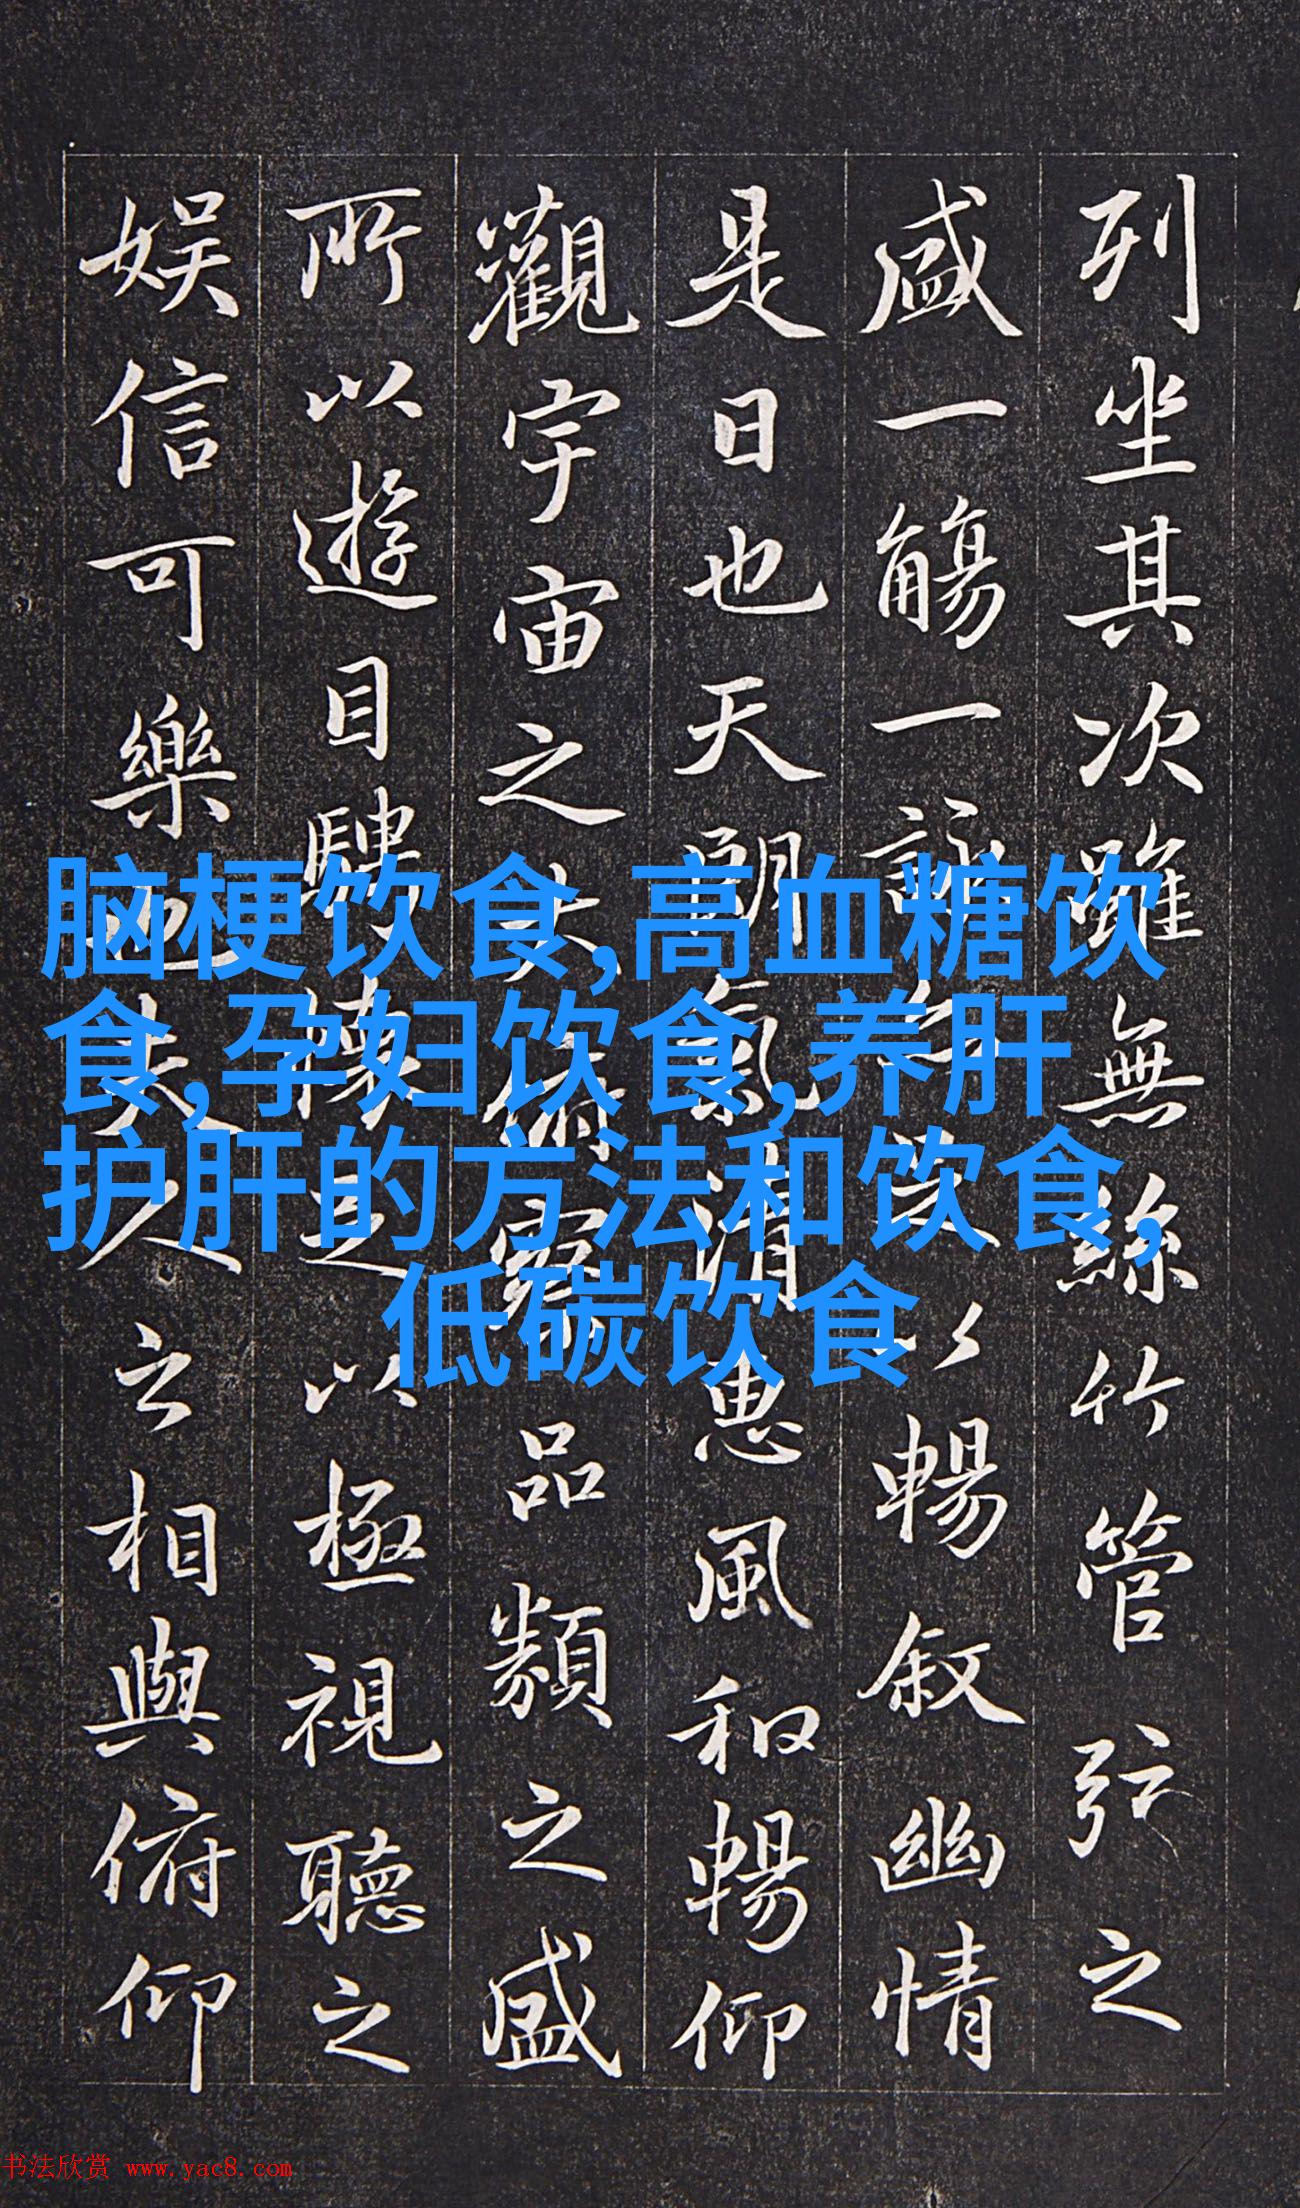 列坐其次雖無絲竹管弦之
盛一觴一詠亦足以暢敘幽情
是日也天朗氣清惠風和暢仰
觀宇宙之大俯察品類之盛
所以遊目騁懷足以極視聽之
娛信可樂也夫人之相與俯仰
脑梗饮食,高血糖饮
食,孕妇饮食,养肝
护肝的方法和饮食,
低碳饮食
书法欣赏 www.yac8.com